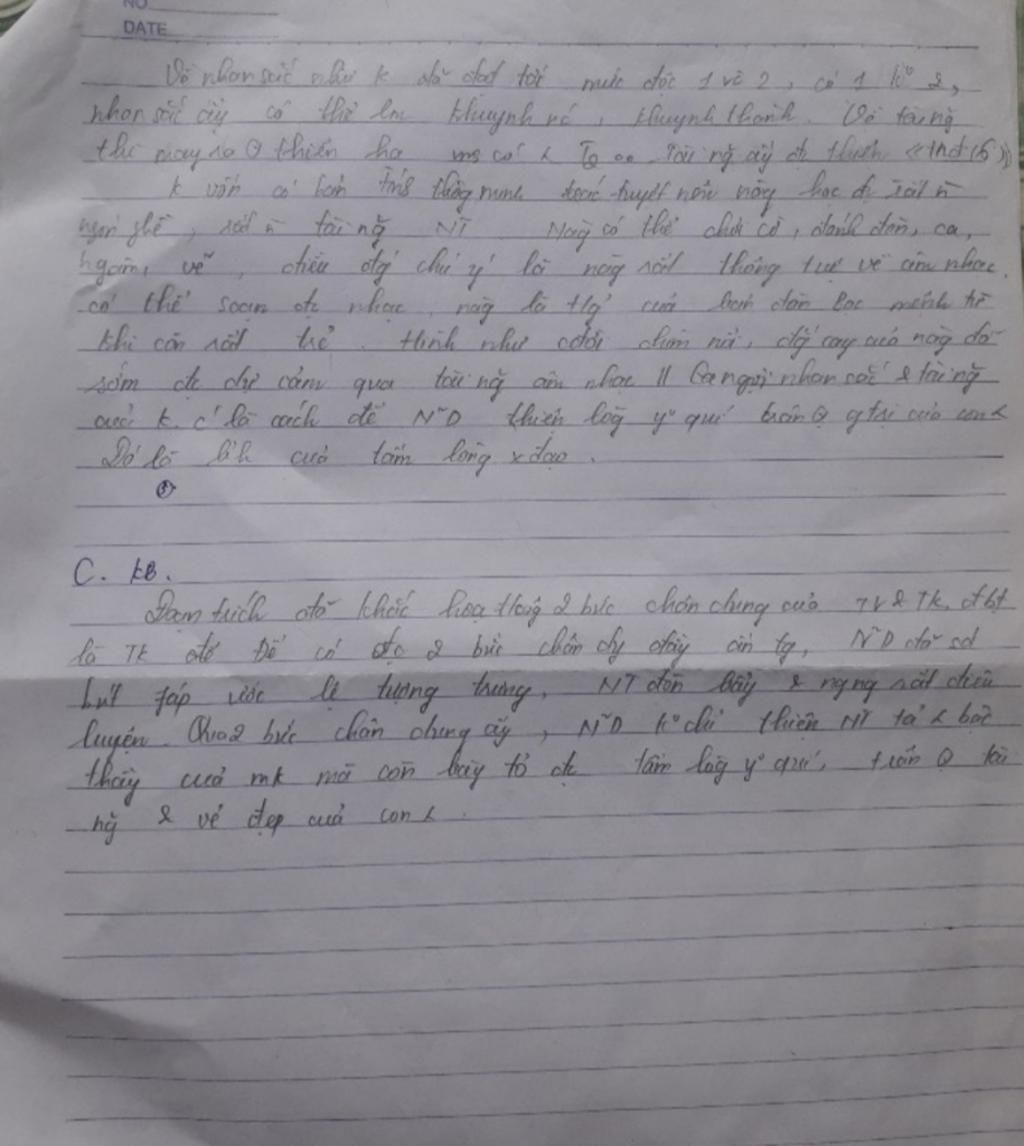 NO
DATE
Về nhan sắc như k đã đạt tới mức độc 1 vô 2, có 1 k° 2,
nhan sắc ấy có thể lm khuynh nc, khuynh thành. Về tài ng̃
thì may ra thiên hạ ms có TQ Tài ng̃ ấy đc
k vốn có bản tính thông minh tuyệt nên nàng học đc rất n̄
ngón nghề, rất n̄ tài ng̃ NT Nàg có thể chơi cờ, đánh đàn, ca,
ngâm, vẽ, điều đág chú ý là nàg rất thông tuệ về âm nhạc.
có thể soạn đc nhạc, nàg là t/g của bản đàn bạc mệnh từ
khi còn rất trẻ. Hình như cđời chìm nổi, đắg cay của nàg đã
sớm đc dự cảm qua tài ng̃ âm nhạc // Ca ngợi nhan sắc & tài ng̃
của k. c~ là cách để N~D thiện lòg y° quí trân Q gtrị của con
Đó là của tấm lòng x đạo.
C. KB.
Đoạn trích đã khắc họa 2 bức chân dung của TV & TK. đbt
là TK Để có đc 2 bức chân dg đầy ấn tg, N~D đã sd
bút fáp ước lệ tượng trưng, NT đòn bẩy & rất điêu
luyện. Qua 2 bức chân dung ấy, N~D k° chỉ thiện NT tả bậc
thầy của mk mà còn bày tỏ đc tấm lòg y° quí, trân Q tài
ng̃ & vẻ đẹp của con